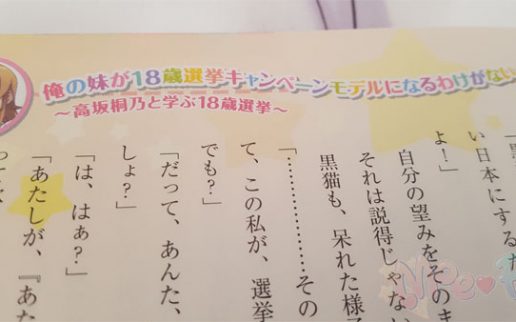 俺の妹が18歳選挙キャンペーンモデルになるわけがない
~高坂桐乃と学ぶ18歳選挙~
い日本にするた
よ！」
自分の望みをそのま
それは説得じゃない
黒猫も、呆れた様子
「……………その
て、この私が、選挙
でも？」
「だって、あんた、
しょ？」
「は、はぁ？」
「あたしが、『あた